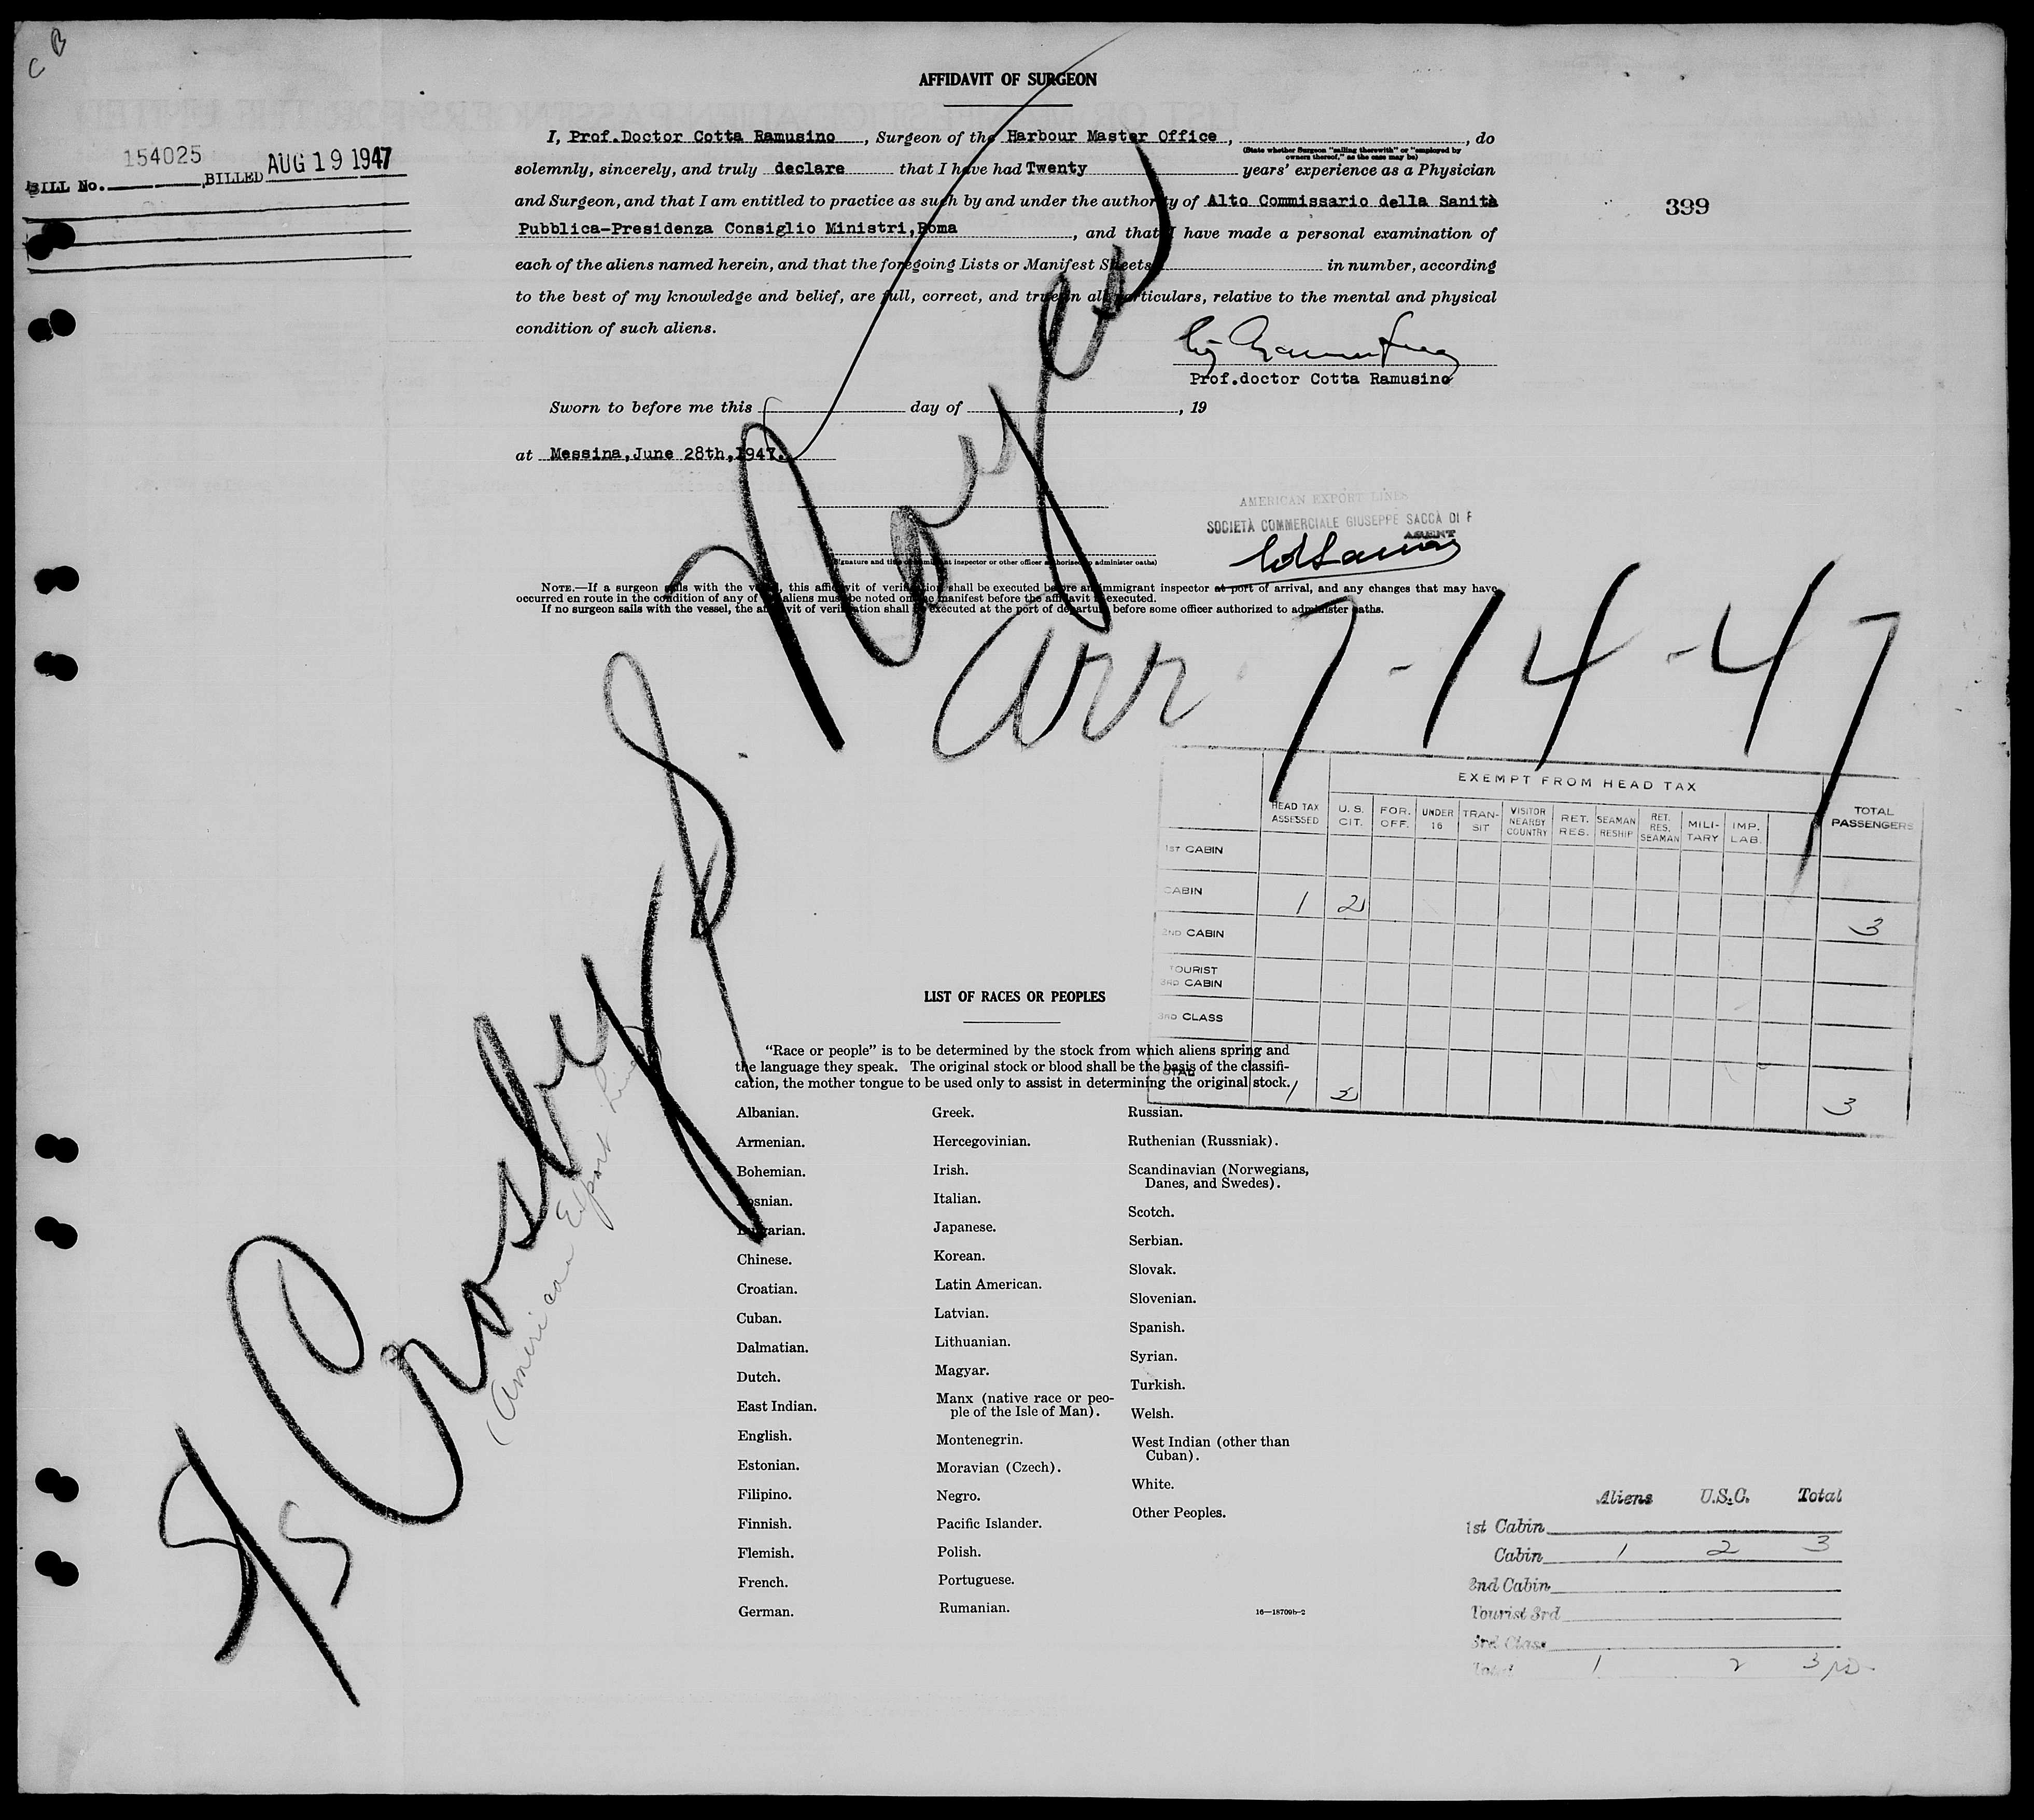 C B
AFFIDAVIT OF SURGEON
I, Prof.Doctor Cotta Ramusino, Surgeon of the Harbour Master Office, , do
(State whether Surgeon "sailing therewith" or "employed by
owners thereof," as the case may be)
154025
BILL No. BILLED AUG 19 1947
solemnly, sincerely, and truly declare that I have had Twenty years' experience as a Physician
and Surgeon, and that I am entitled to practice as such by and under the authority of Alto Commissario della Sanità
399
Pubblica-Presidenza Consiglio Ministri,Roma, and that I have made a personal examination of
each of the aliens named herein, and that the foregoing Lists or Manifest Sheets in number, according
to the best of my knowledge and belief, are full, correct, and true in all particulars, relative to the mental and physical
condition of such aliens.
Prof.doctor Cotta Ramusino
Sworn to before me this day of , 19
at Messina,June 28th,1947.
AMERICAN EXPORT LINES
SOCIETÀ COMMERCIALE GIUSEPPE SACCÀ DI F
AGENT
(Signature and title of immigrant inspector or other officer authorized to administer oaths)
NOTE.—If a surgeon sails with the vessel, this affidavit of verification shall be executed before an immigrant inspector at port of arrival, and any changes that may have
occurred en route in the condition of any of the aliens must be noted on the manifest before the affidavit is executed.
If no surgeon sails with the vessel, the affidavit of verification shall be executed at the port of departure before some officer authorized to administer oaths.
S/S Crosby S. Noyes
(American Export Lines)
Arr 7-14-47
EXEMPT FROM HEAD TAX
HEAD TAX ASSESSED U.S. CIT. FOR. OFF. UNDER 16 TRANSIT VISITOR NEARBY COUNTRY RET. RES. SEAMAN RESHIP RET. RES. SEAMAN MILITARY IMP. LAB. TOTAL PASSENGERS
1ST CABIN
CABIN 1 2 3
2ND CABIN
TOURIST
3RD CABIN
3RD CLASS
TOTAL 1 2 3
LIST OF RACES OR PEOPLES
"Race or people" is to be determined by the stock from which aliens spring and
the language they speak. The original stock or blood shall be the basis of the classifi-
cation, the mother tongue to be used only to assist in determining the original stock.
Albanian.
Armenian.
Bohemian.
Bosnian.
Bulgarian.
Chinese.
Croatian.
Cuban.
Dalmatian.
Dutch.
East Indian.
English.
Estonian.
Filipino.
Finnish.
Flemish.
French.
German.
Greek.
Hercegovinian.
Irish.
Italian.
Japanese.
Korean.
Latin American.
Latvian.
Lithuanian.
Magyar.
Manx (native race or peo-
ple of the Isle of Man).
Montenegrin.
Moravian (Czech).
Negro.
Pacific Islander.
Polish.
Portuguese.
Rumanian.
Russian.
Ruthenian (Russniak).
Scandinavian (Norwegians,
Danes, and Swedes).
Scotch.
Serbian.
Slovak.
Slovenian.
Spanish.
Syrian.
Turkish.
Welsh.
West Indian (other than
Cuban).
White.
Other Peoples.
16—18709b-2
Aliens U.S.C. Total
1st Cabin
Cabin 1 2 3
2nd Cabin
Tourist 3rd
3rd Class
Total 1 2 3